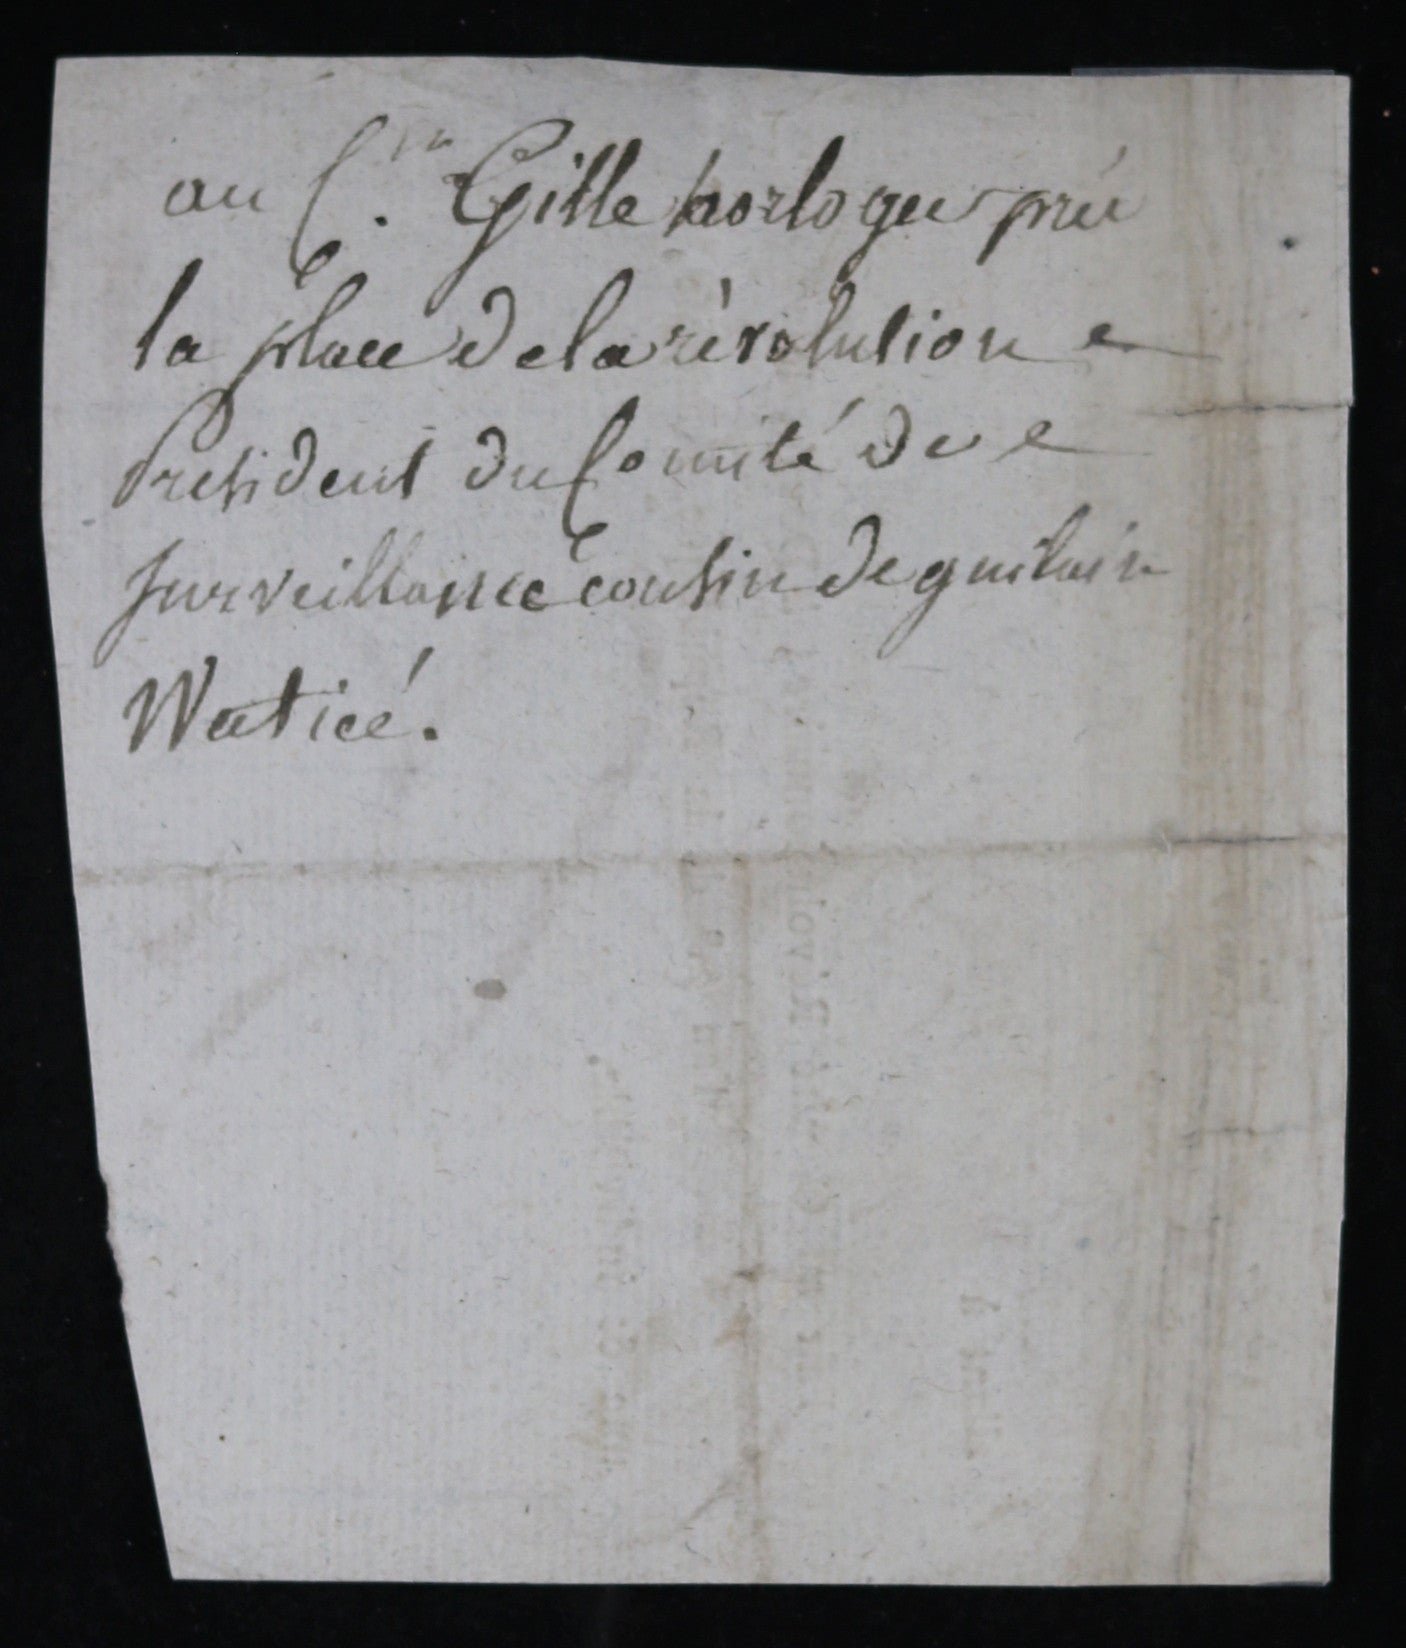 au C.en Gille horloger près
la place de la révolution
President du Comité de
surveillance cousin de guilain
Waticé.